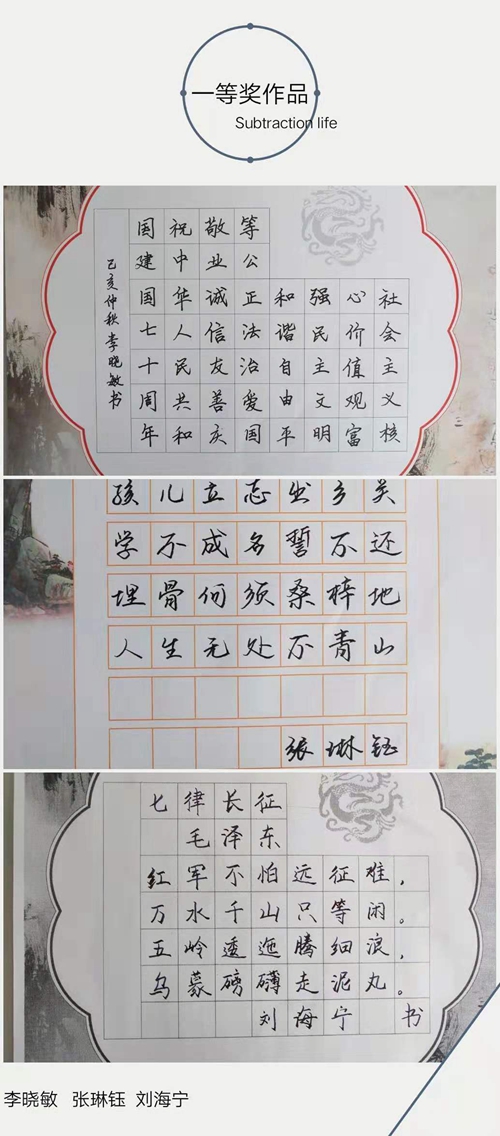 一等奖作品
Subtraction life
社会主义核
心价值观富
强民主文明
和谐自由平
等公正法治爱国
敬业诚信友善庆
祝中华人民共和
国建国七十周年
己亥仲秋李晓敏书
孩儿立志出乡关
学不成名誓不还
埋骨何须桑梓地
人生无处不青山
张琳钰
七律长征
毛泽东
红军不怕远征难，
万水千山只等闲。
五岭逶迤腾细浪，
乌蒙磅礴走泥丸。
刘海宁 书
李晓敏 张琳钰 刘海宁